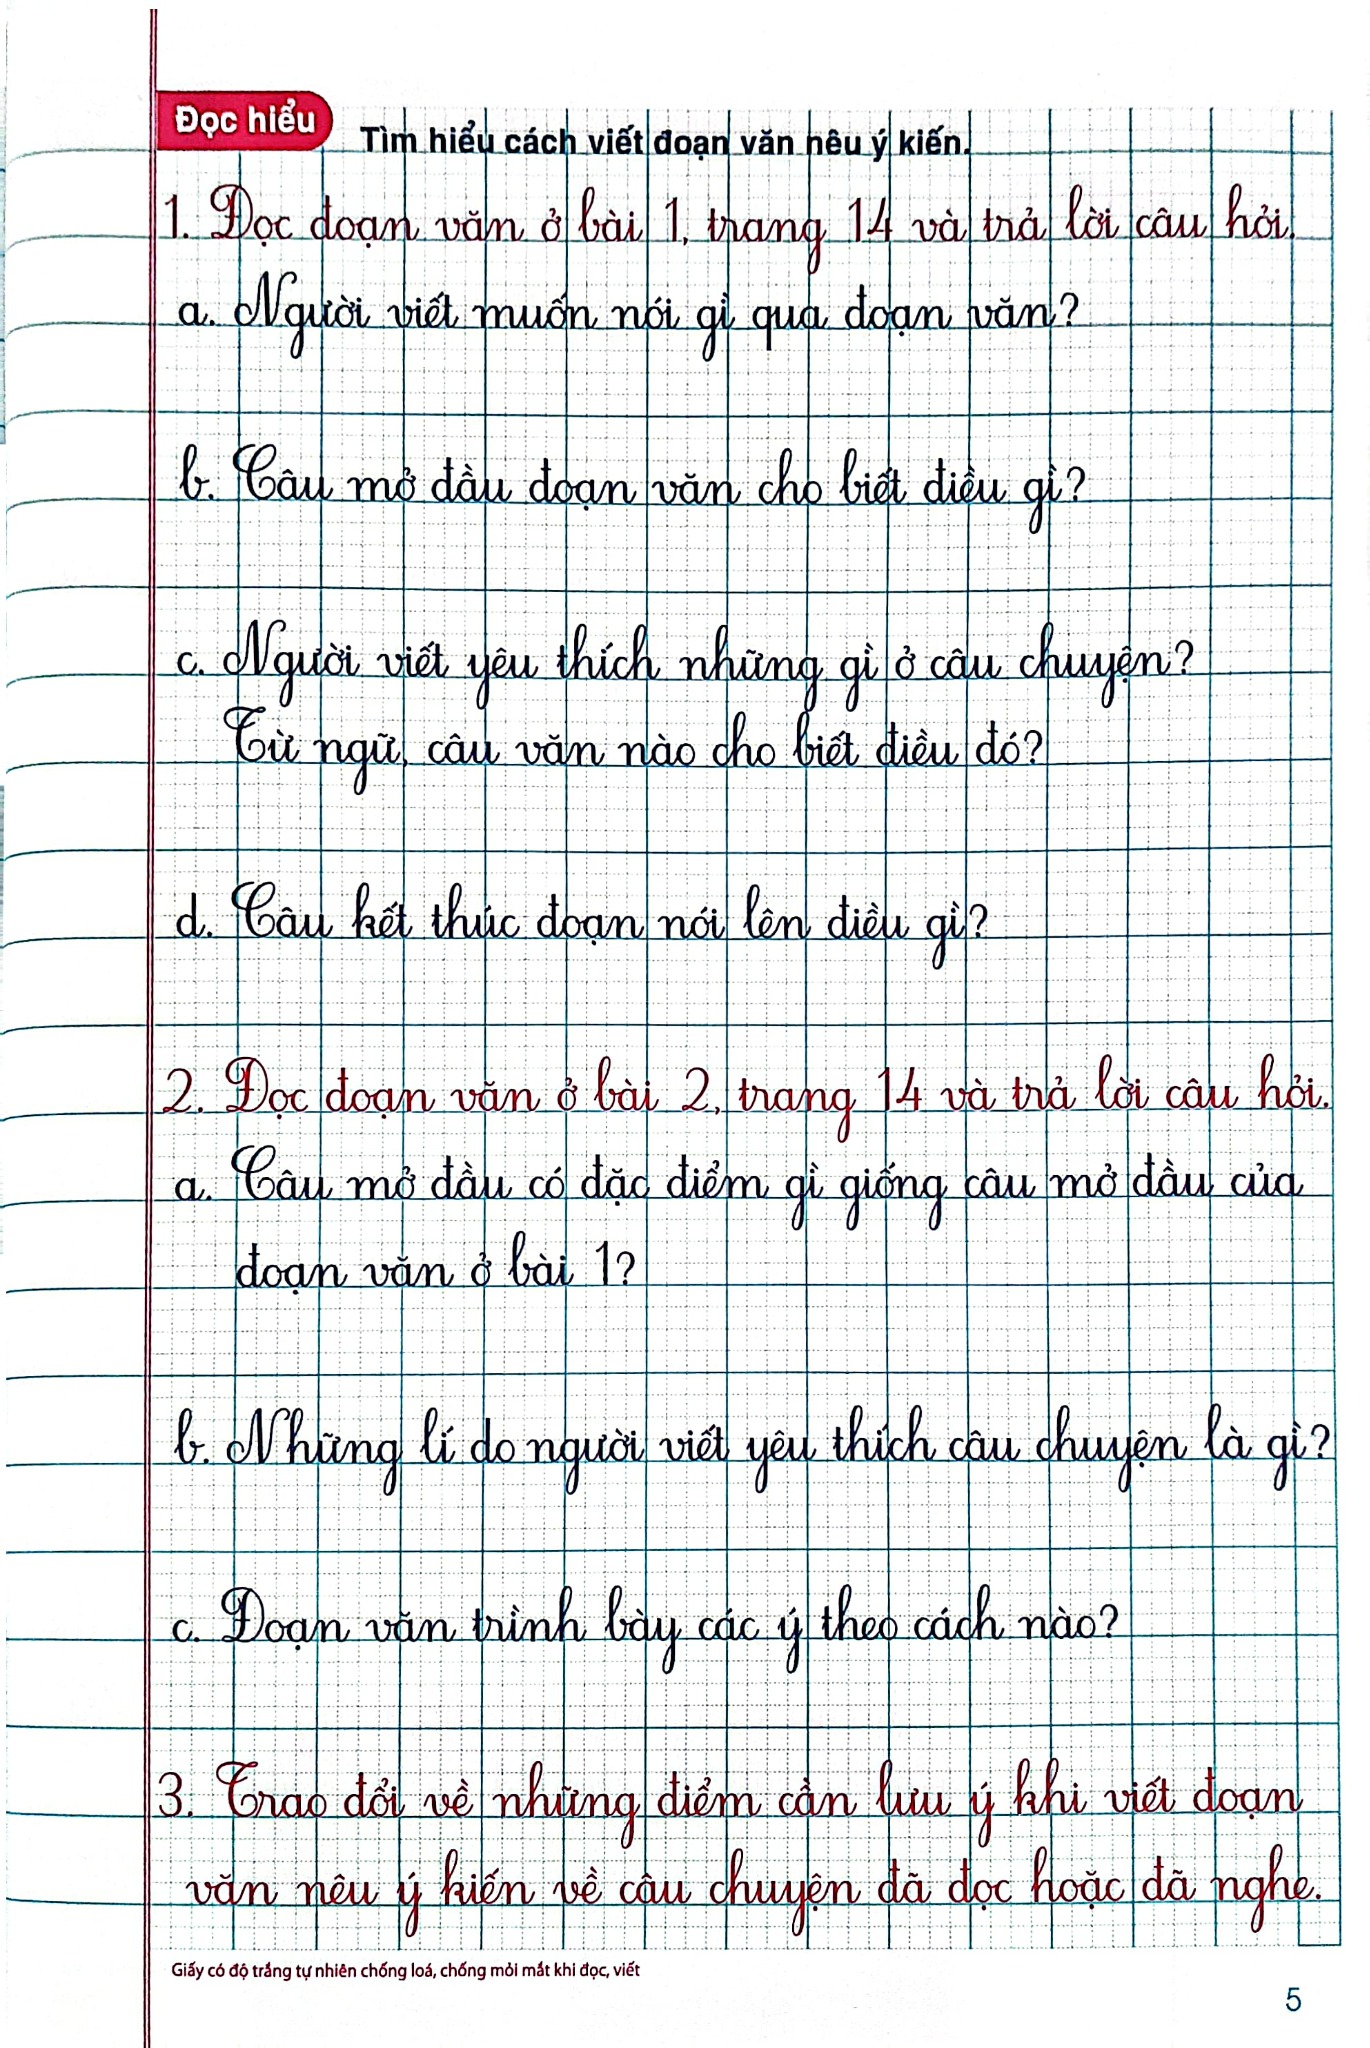 Đọc hiểu
Tìm hiểu cách viết đoạn văn nêu ý kiến.
1. Đọc đoạn văn ở bài 1, trang 14 và trả lời câu hỏi.
a. Người viết muốn nói gì qua đoạn văn?
b. Câu mở đầu đoạn văn cho biết điều gì?
c. Người viết yêu thích những gì ở câu chuyện?
Từ ngữ, câu văn nào cho biết điều đó?
d. Câu kết thúc đoạn nói lên điều gì?
2. Đọc đoạn văn ở bài 2, trang 14 và trả lời câu hỏi.
a. Câu mở đầu có đặc điểm gì giống câu mở đầu của
đoạn văn ở bài 1?
b. Những lí do người viết yêu thích câu chuyện là gì?
c. Đoạn văn trình bày các ý theo cách nào?
3. Trao đổi về những điểm cần lưu ý khi viết đoạn
văn nêu ý kiến về câu chuyện đã đọc hoặc đã nghe.
Giấy có độ trắng tự nhiên chống loá, chống mỏi mắt khi đọc, viết
5